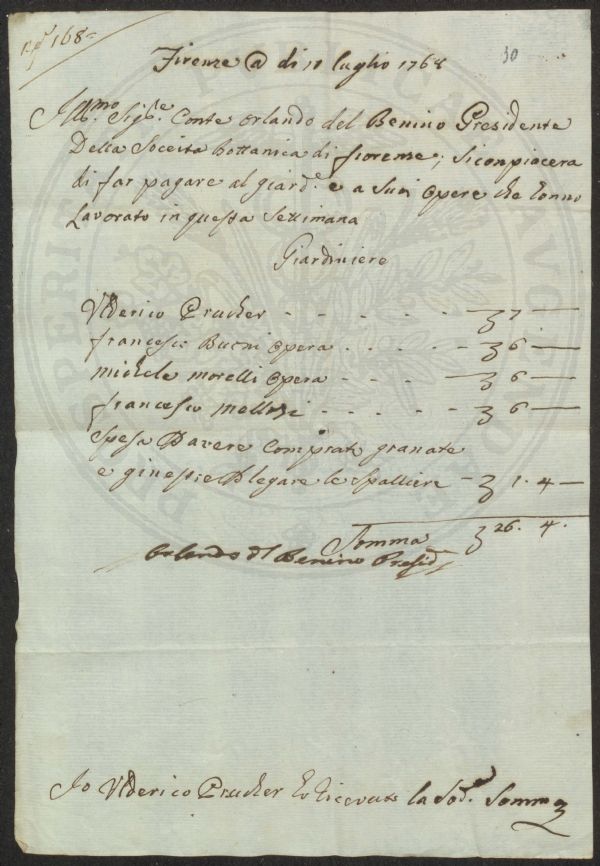 168
30
Firenze @ di 18 luglio 1768
Ill.mo Sig.re Conte Orlando del Benino Presidente
Della Soceita bottanica di fiorense; si conpiacera
di far pagare al giard.e e a suoi opere che honno
Lavorato in questa Settimana
Giardiniere
Vlderico Prucker - - - - - - 7 —
francesco Bucni opera - - - - 6 —
michele morelli opera - - - - 6 —
francesco mellosi - - - - - 6 —
spesa Davere Comprate granate
e ginestre D legare le spalliere - 1. 4 —
Somma 26. 4.
Orlando del Benino Presid.
Io Vlderico Prucker ho ricevuto la sod.a Somma